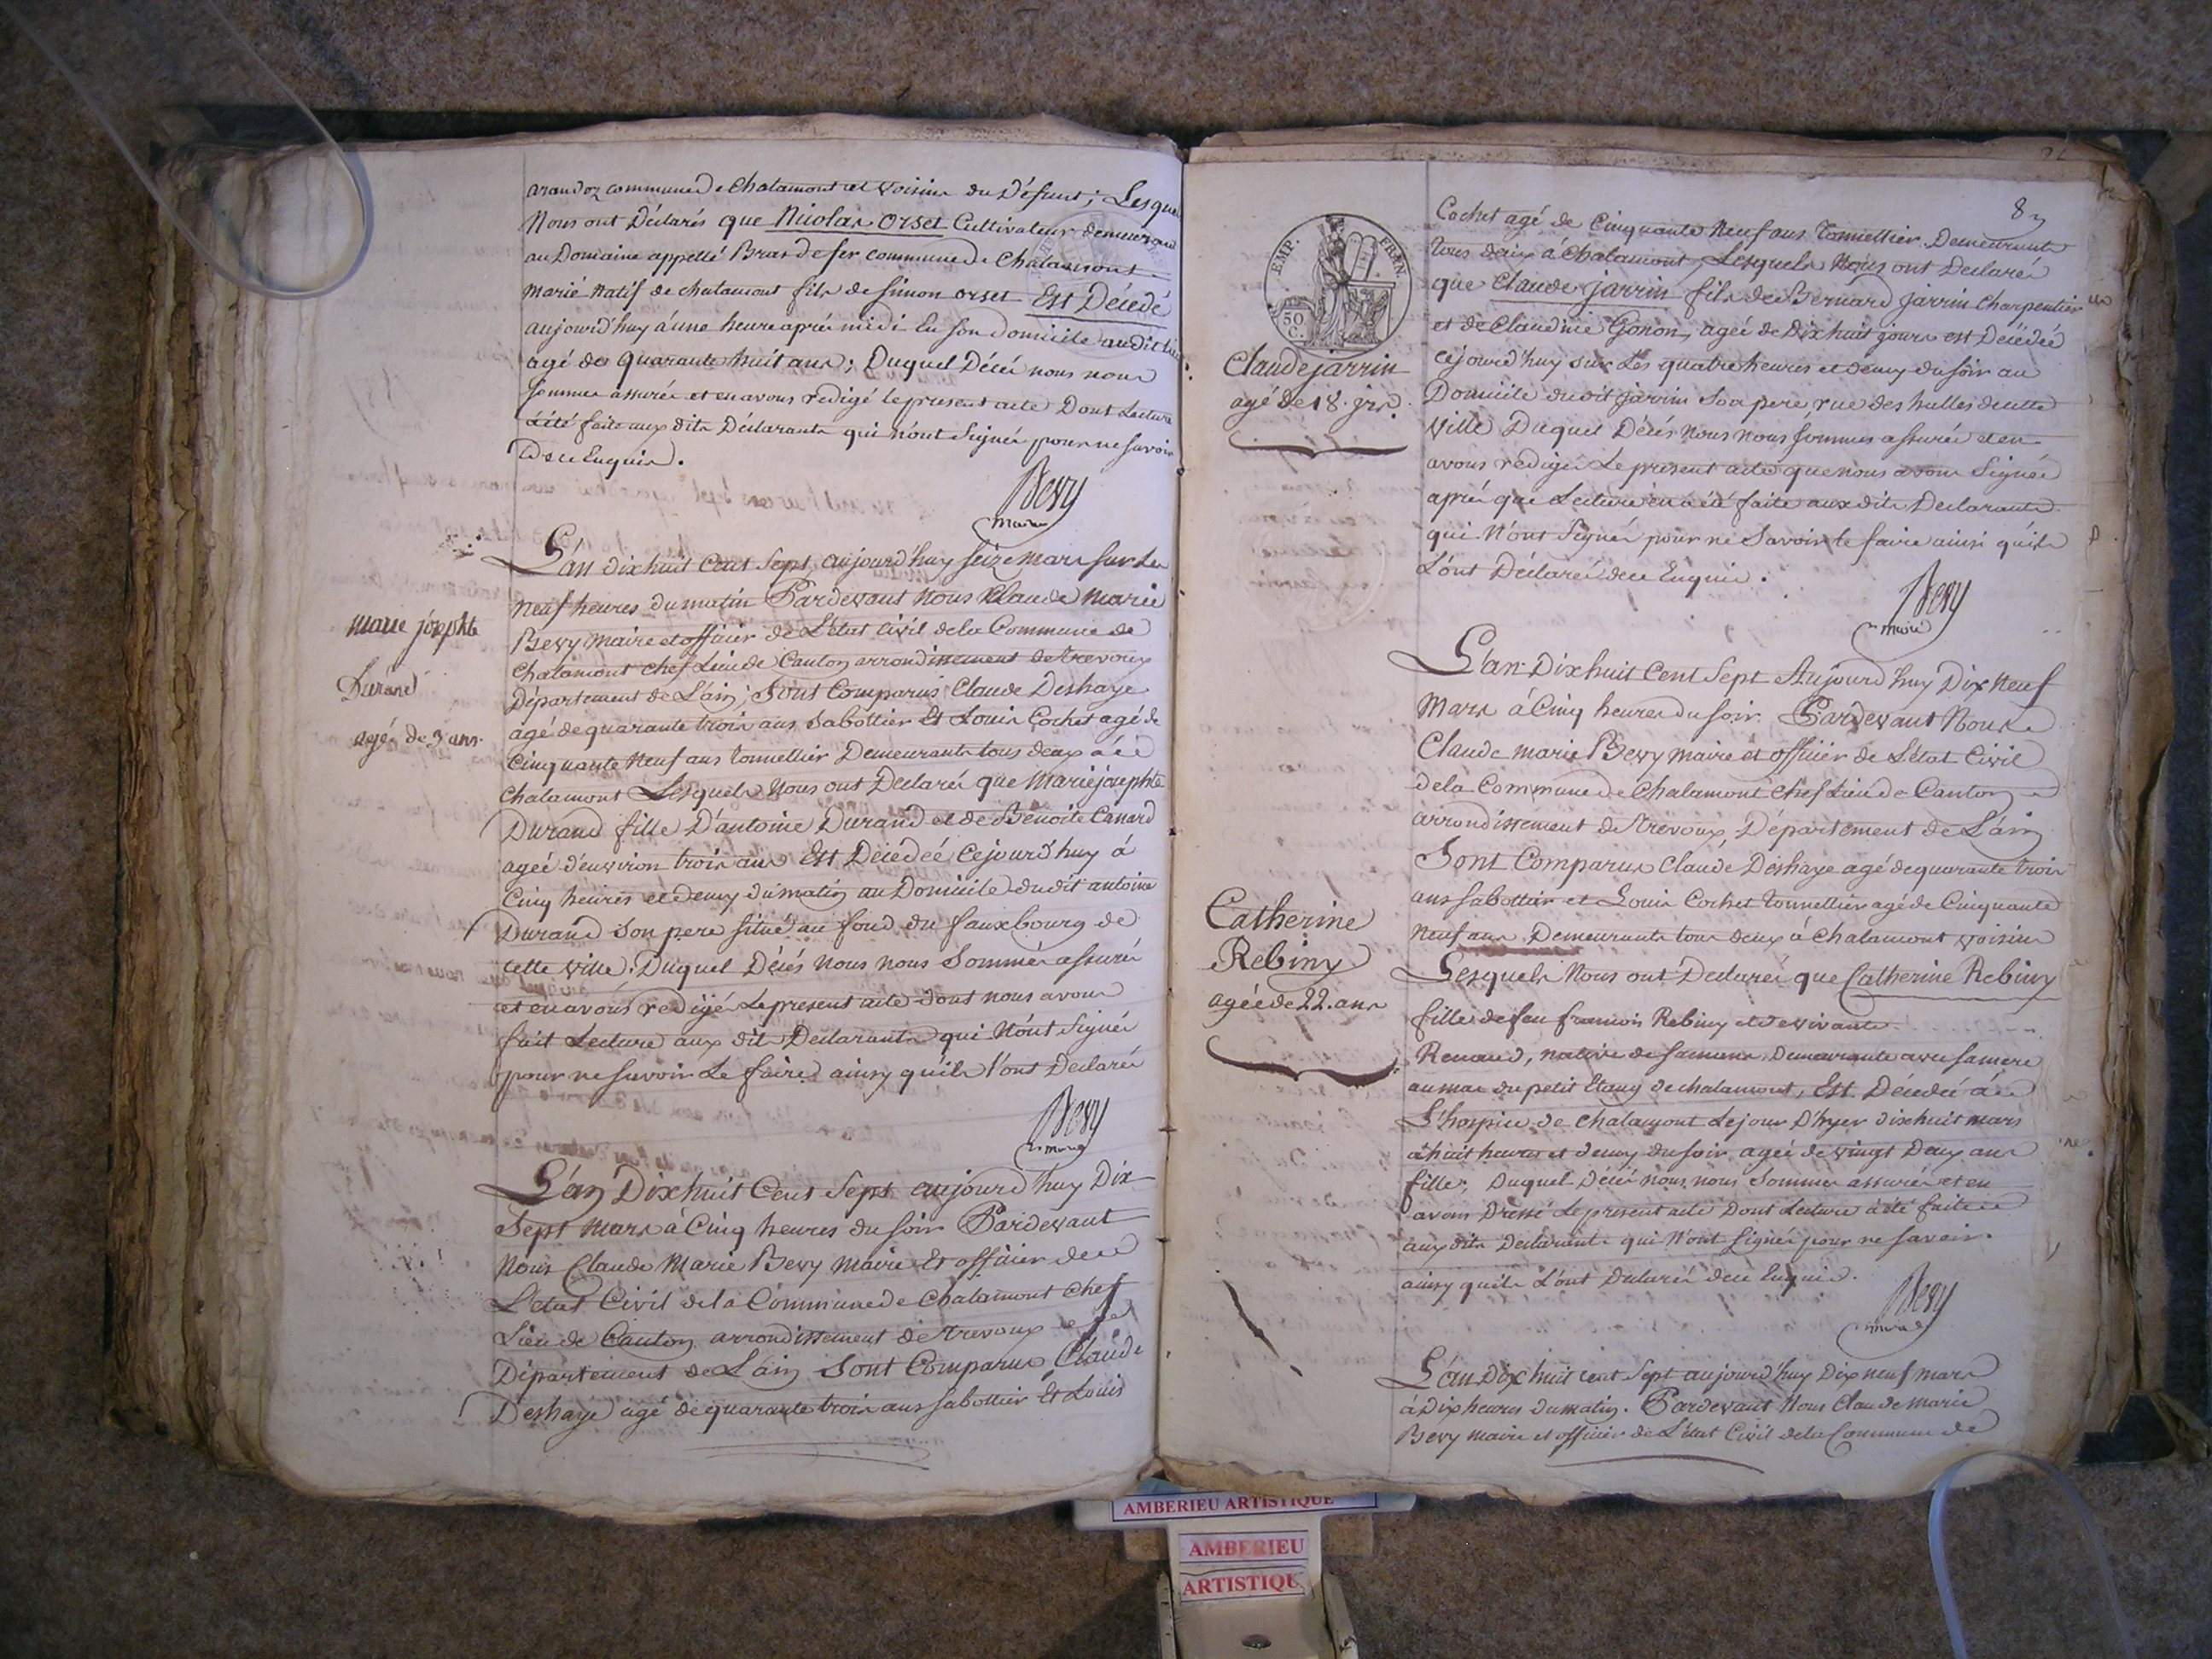 arandoz commune de Chalamont et voisin du Défunt; Lesquel
Nous ont Déclarés que Nicolas Orset Cultivateur demeurant
au Domaine appellé Bras de fer commune de Chalamont
marié natif de chalamont fils de simon orset Est Décedé
aujourd'huy à une heure aprés midi En son domicile audit lieu
agé de quarante huit ans; Duquel Décés nous nous
sommes assurés et en avons redigé le present acte Dont Lecture
à été faite aux dits Déclarants qui n'ont Signés pour ne savoir
De ce Enquis.
Bevy
maire
marie josephte
Durand
agée de 3 ans.
L'an dix huit Cent Sept aujourd'huy seize mars sur les
neuf heures du matin Pardevant nous Claude Marie
Bevy Maire et officier de L'état Civil de la Commune de
Chalamont chef Lieu de Canton arrondissement de Trevoux
Département de L'ain; Sont Comparus Claude Deshaye
agé de quarante trois ans Sabottier Et Louis Cochet agé de
Cinquante Neuf ans tonnellier Demeurants tous deux à
Chalamont Lesquels Nous ont Declaré que Marie josephte
Durand fille D'antoine Durand et de Benoite Canard
agée d'euviron trois ans Est Décédée Cejourd'huy à
Cinq heures et demy du matin au Domicile dudit antoine
Durand Son pere situé au fond du fauxbourg de
cette ville, Duquel Décés nous nous Sommes assurés
et en avons redigé Le present acte dont nous avons
fait Lecture aux dits Declarants qui N'ont Signés
pour ne savoir Le faire ainsy qu'ils l'ont Declaré
Bevy
maire
L'an Dix huit Cent Sept aujourd'huy Dix
Sept Mars à Cinq heures du Soir Pardevant
Nous Claude Marie Bevy Maire Et officier de
L'état Civil de la Commune de Chalamont Chef
Lieu de Canton arrondissement de Trevoux
Département de L'ain Sont Comparus Claude
Deshaye agé de quarante trois ans Sabottier Et Louis
EMP. FRAN.
50 C.
Claude jarrin
agé de 18. jrs.
Cochet agé de Cinquante Neuf ans Tonnellier Demeurants
tous deux à Chalamont, Lesquels Nous ont Declarés
que Claude jarrin fils de Bernard jarrin Charpentier
et de Claudine Gonon, agée de Dix huit jours est Décédée
cejourd'huy sur Les quatre heures et demy du soir au
Domicile dudit jarrin Son pere rue des halles de cette
ville Duquel Décés Nous nous sommes assurés et en
avons redigé Le present acte que nous avons Signé
aprés que Lecture en à été faite aux dits Declarants
qui N'ont Signés pour ne Savoir le faire ainsi qu'ils
L'ont Déclaré de ce Enquis.
Bevy
maire
Catherine
Rebiny
agée de 22. ans
L'an Dix huit Cent Sept Aujourd'huy Dix Neuf
Mars à Cinq heures du Soir Pardevant Nous
Claude Marie Bevy Maire et officier de L'état Civil
de la Commune de Chalamont Chef Lieu de Canton
arrondissement de Trevoux, Département de L'ain
Sont Comparus Claude Deshaye agé de quarante trois
ans Sabottier et Louis Cochet tonnellier agé de Cinquante
Neuf ans Demeurants tous deux à Chalamont voisins
Lesquels Nous ont Declarés que Catherine Rebiny
fille de feu francois Rebiny et de vivante
Renaud, native de Demeurante avec sa mere
au mas du petit Etang de chalamont, Est Décédée à
L'hospice de Chalamont Le jour D'hyer dix huit mars
à huit heures et demy du soir agée de vingt Deux ans
fille; Duquel Décés nous nous Sommes assurés et en
avons Dressé Le present acte Dont Lecture à été faite
aux dits Declarants qui N'ont Signés pour ne savoir
ainsy qu'ils L'ont Declaré de ce Enquis.
Bevy
maire
L'an Dix huit cent Sept aujourd'huy Dix neuf mars
à Dix heures du matin. Pardevant Nous Claude Marie
Bevy maire et officier de L'état Civil de la Commune de
AMBERIEU ARTISTIQUE
AMBERIEU
ARTISTIQU